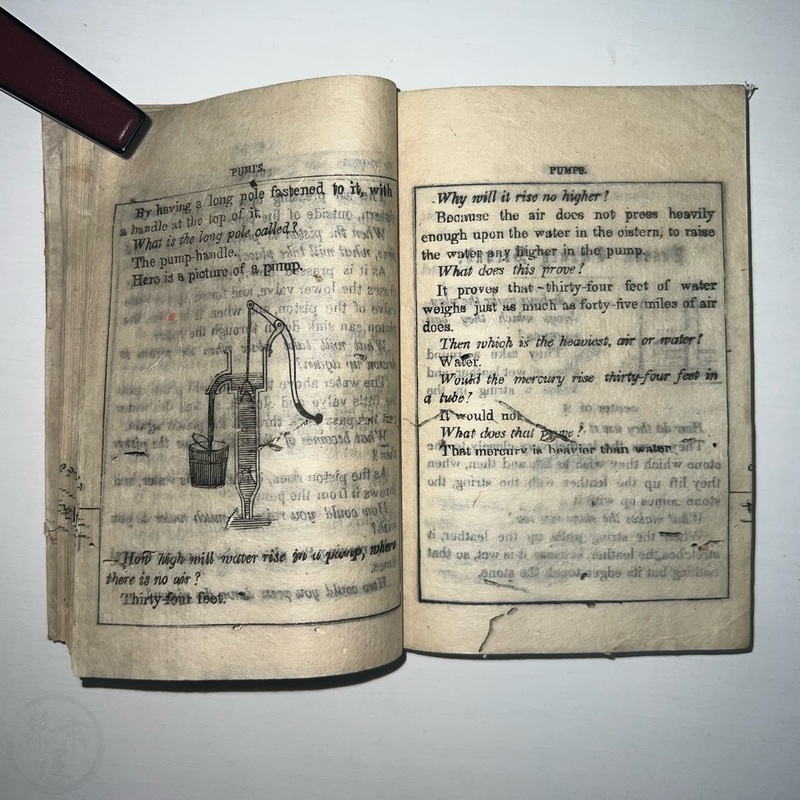 PUMPS.
By having a long pole fastened to it, with
a handle at the top of it.
What is the long pole called?
The pump-handle.
Here is a picture of a pump.
How high will water rise in a pump, where
there is no air?
Thirty-four feet.
PUMPS.
Why will it rise no higher?
Because the air does not press heavily
enough upon the water in the cistern, to raise
the water any higher in the pump.
What does this prove?
It proves that thirty-four feet of water
weighs just as much as forty-five miles of air
does.
Then which is the heaviest, air or water?
Water.
Would the mercury rise thirty-four feet in
a tube?
It would not.
What does that prove?
That mercury is heavier than water.